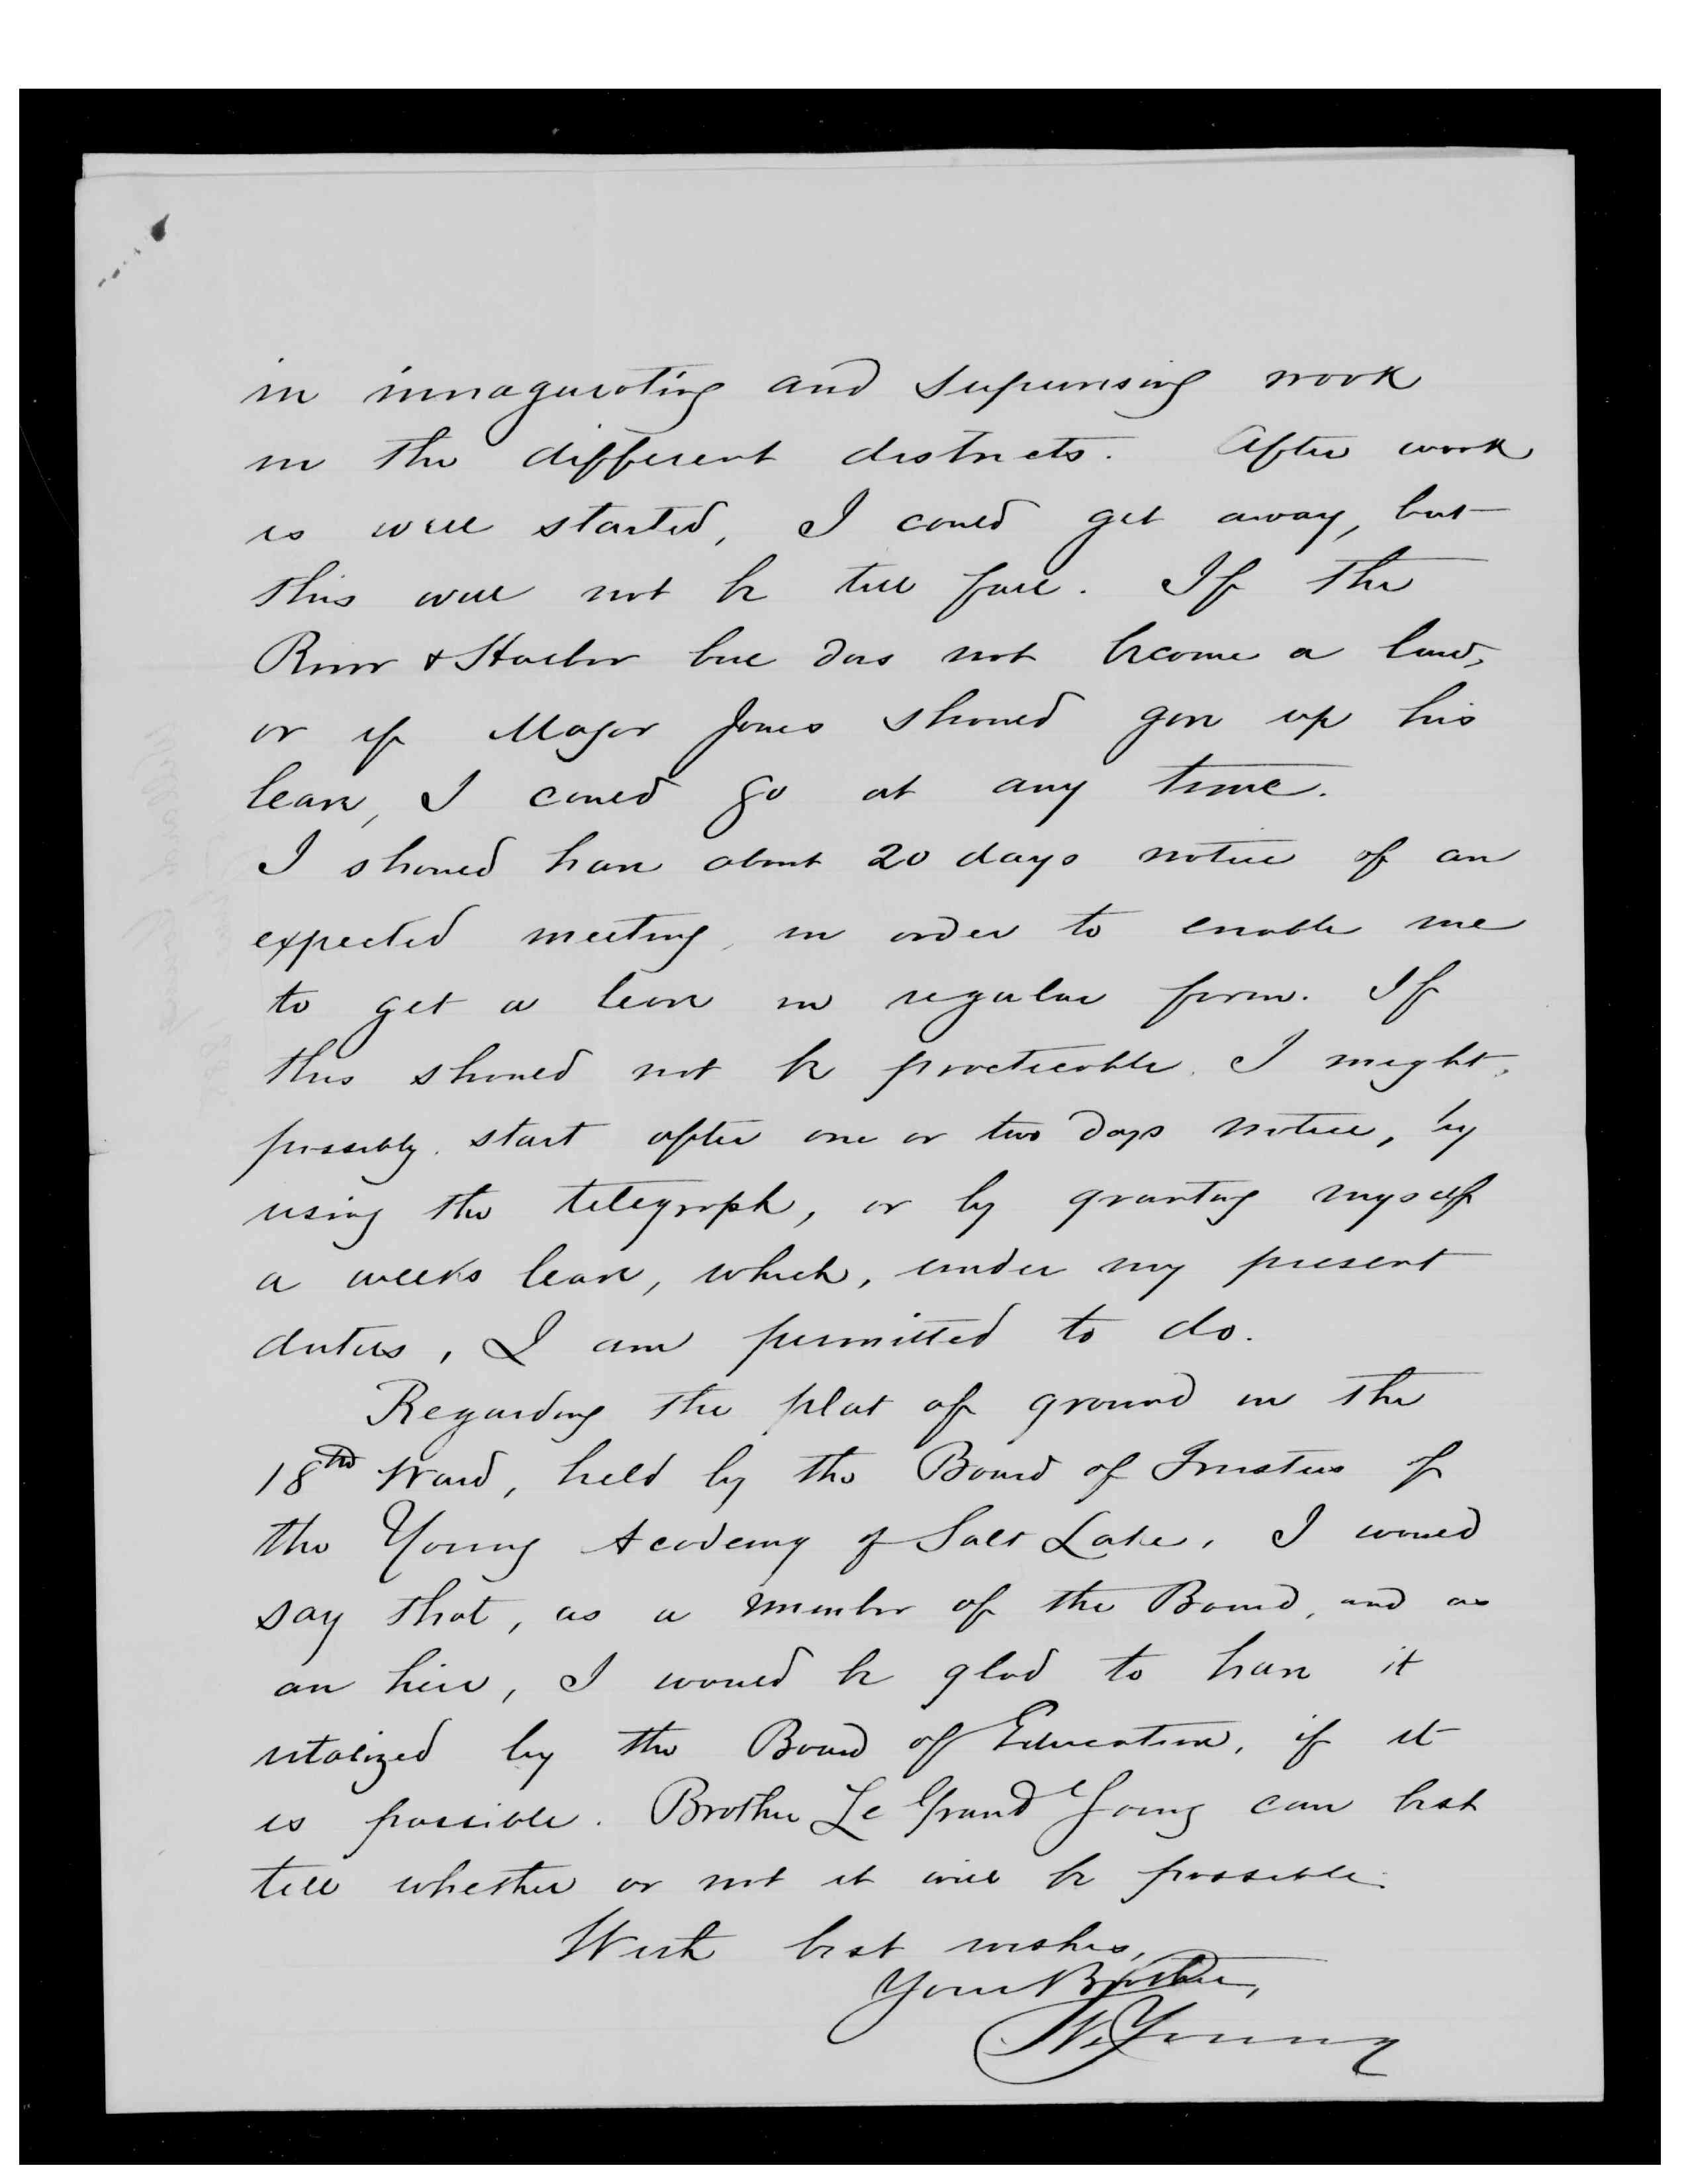 in innagurating and supervising work
in the different districts. After work
is well started, I could get away, but
this will not be till fall. If the
River & Harbor bill does not become a law,
or if Major Jones should give up his
leave, I could go at any time.
I should have about 20 days notice of an
expected meeting, in order to enable me
to get a leave in regular form. If
this should not be practicable, I might,
possibly, start after one or two days notice, by
using the telegraph, or by granting myself
a weeks leave, which, under my present
duties, I am permitted to do.
Regarding the plat of ground in the
18th Ward, held by the Board of Trustees of
the Young Academy of Salt Lake, I would
say that, as a member of the Board, and as
an heir, I would be glad to have it
utalized by the Board of Education, if it
is possible. Brother Le Grand Young can best
tell whether or not it will be possible.
With best wishes,
Your Brother,
W. Young